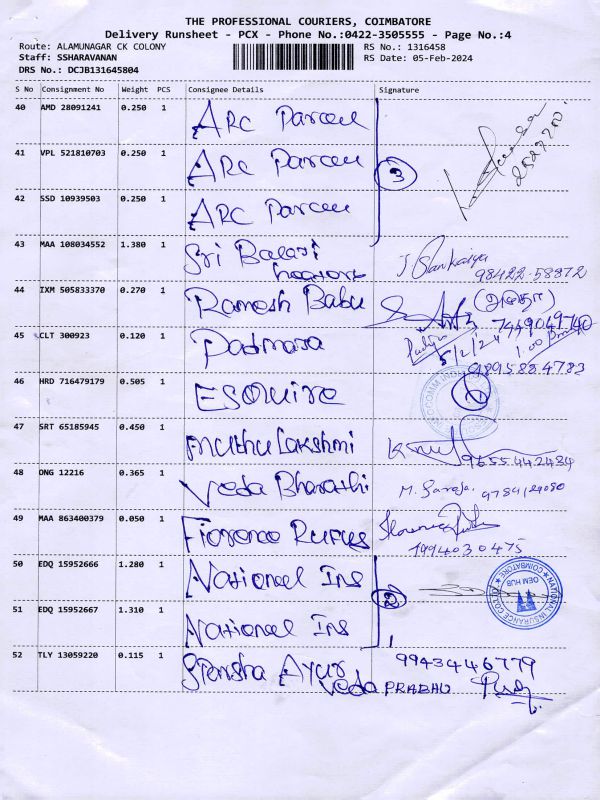 THE PROFESSIONAL COURIERS, COIMBATORE
Delivery Runsheet - PCX - Phone No.:0422-3505555 - Page No.:4
Route: ALAMUNAGAR CK COLONY RS No.: 1316458
Staff: SSHARAVANAN RS Date: 05-Feb-2024
DRS No.: DCJB131645804
S No Consignment No Weight PCS Consignee Details Signature
40 AMD 28091241 0.250 1 ARC Parcel
41 VPL 521810703 0.250 1 ARC Parcel 3
42 SSD 10939503 0.250 1 ARC Parcel
43 MAA 108034552 1.380 1 Sri Balaji
98422-58872
44 IXM 505833370 0.270 1 Ramesh Babu
7449049740
45 CLT 300923 0.120 1 Padmaja 5/2/24 1.00 Pm
9895884783
46 HRD 716479179 0.505 1 ESQUIRE
47 SRT 65185945 0.450 1 Muthu Lakshmi
9655442484
48 ONG 12216 0.365 1 Veda Bharathi M. Saroja.
49 MAA 863400379 0.050 1 Florence Rufus
9994030475
50 EDQ 15952666 1.280 1 National Ins
2 NATIONAL INSURANCE CO. LTD COIMBATORE OEM HUB
51 EDQ 15952667 1.310 1 National Ins
52 TLY 13059220 0.115 1 Ayur 9943446779
Veda PRABHU